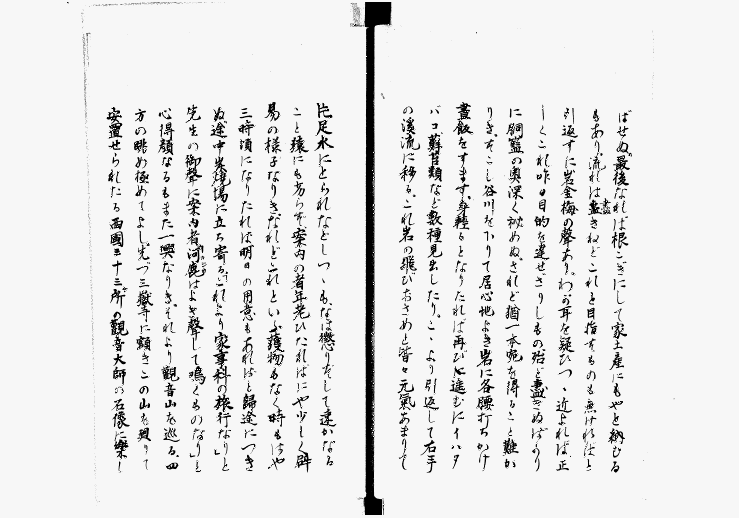 ばせぬ最後なれば根こぎにして家土産にもやと納むる
もあり、流れは盡きねどこれと目指すものも無ければと
引返すに岩金梅の聲あり。わが耳を疑ひつゝ近よれば正
しくこれ昨日目的を達せざりしもの殆ど盡きぬばかり
に胴籃の奥深く秘めぬ。されど猶一本宛を得ること難か
りき。すこし谷川を下りて居心地よき岩に各腰打ちかけ
晝飯をすます。身軽るとなりたれば再び進むにイハタ
バコ、蘚苔類など数種見出したり。こゝより引返して右手
の溪流に移る。これ岩の飛びおさめと皆々元氣あまりて
片足水にとられなどしつゝも、なほ懲りずして遠かなる
こと猿にも劣らず、案内の者年老ひたればにや少しく辟
易の様子なりき。されどこれといふ護物もなく時もはや
三時頃になりたれば明日の用意もあればと歸途につき
ぬ。途中炭焼場に立ち寄る。「これより家事科の旅行なり」と
先生の御聲に案内者「河鹿はよき聲して鳴くものなり」と
心得顔なるもまた一興なりき。それより觀音山を巡る。四
方の眺め極めてよし。先づ三嶽寺に願きこの山を興りて
安置せられたる西國三十三所の觀音大師の石像に樂し